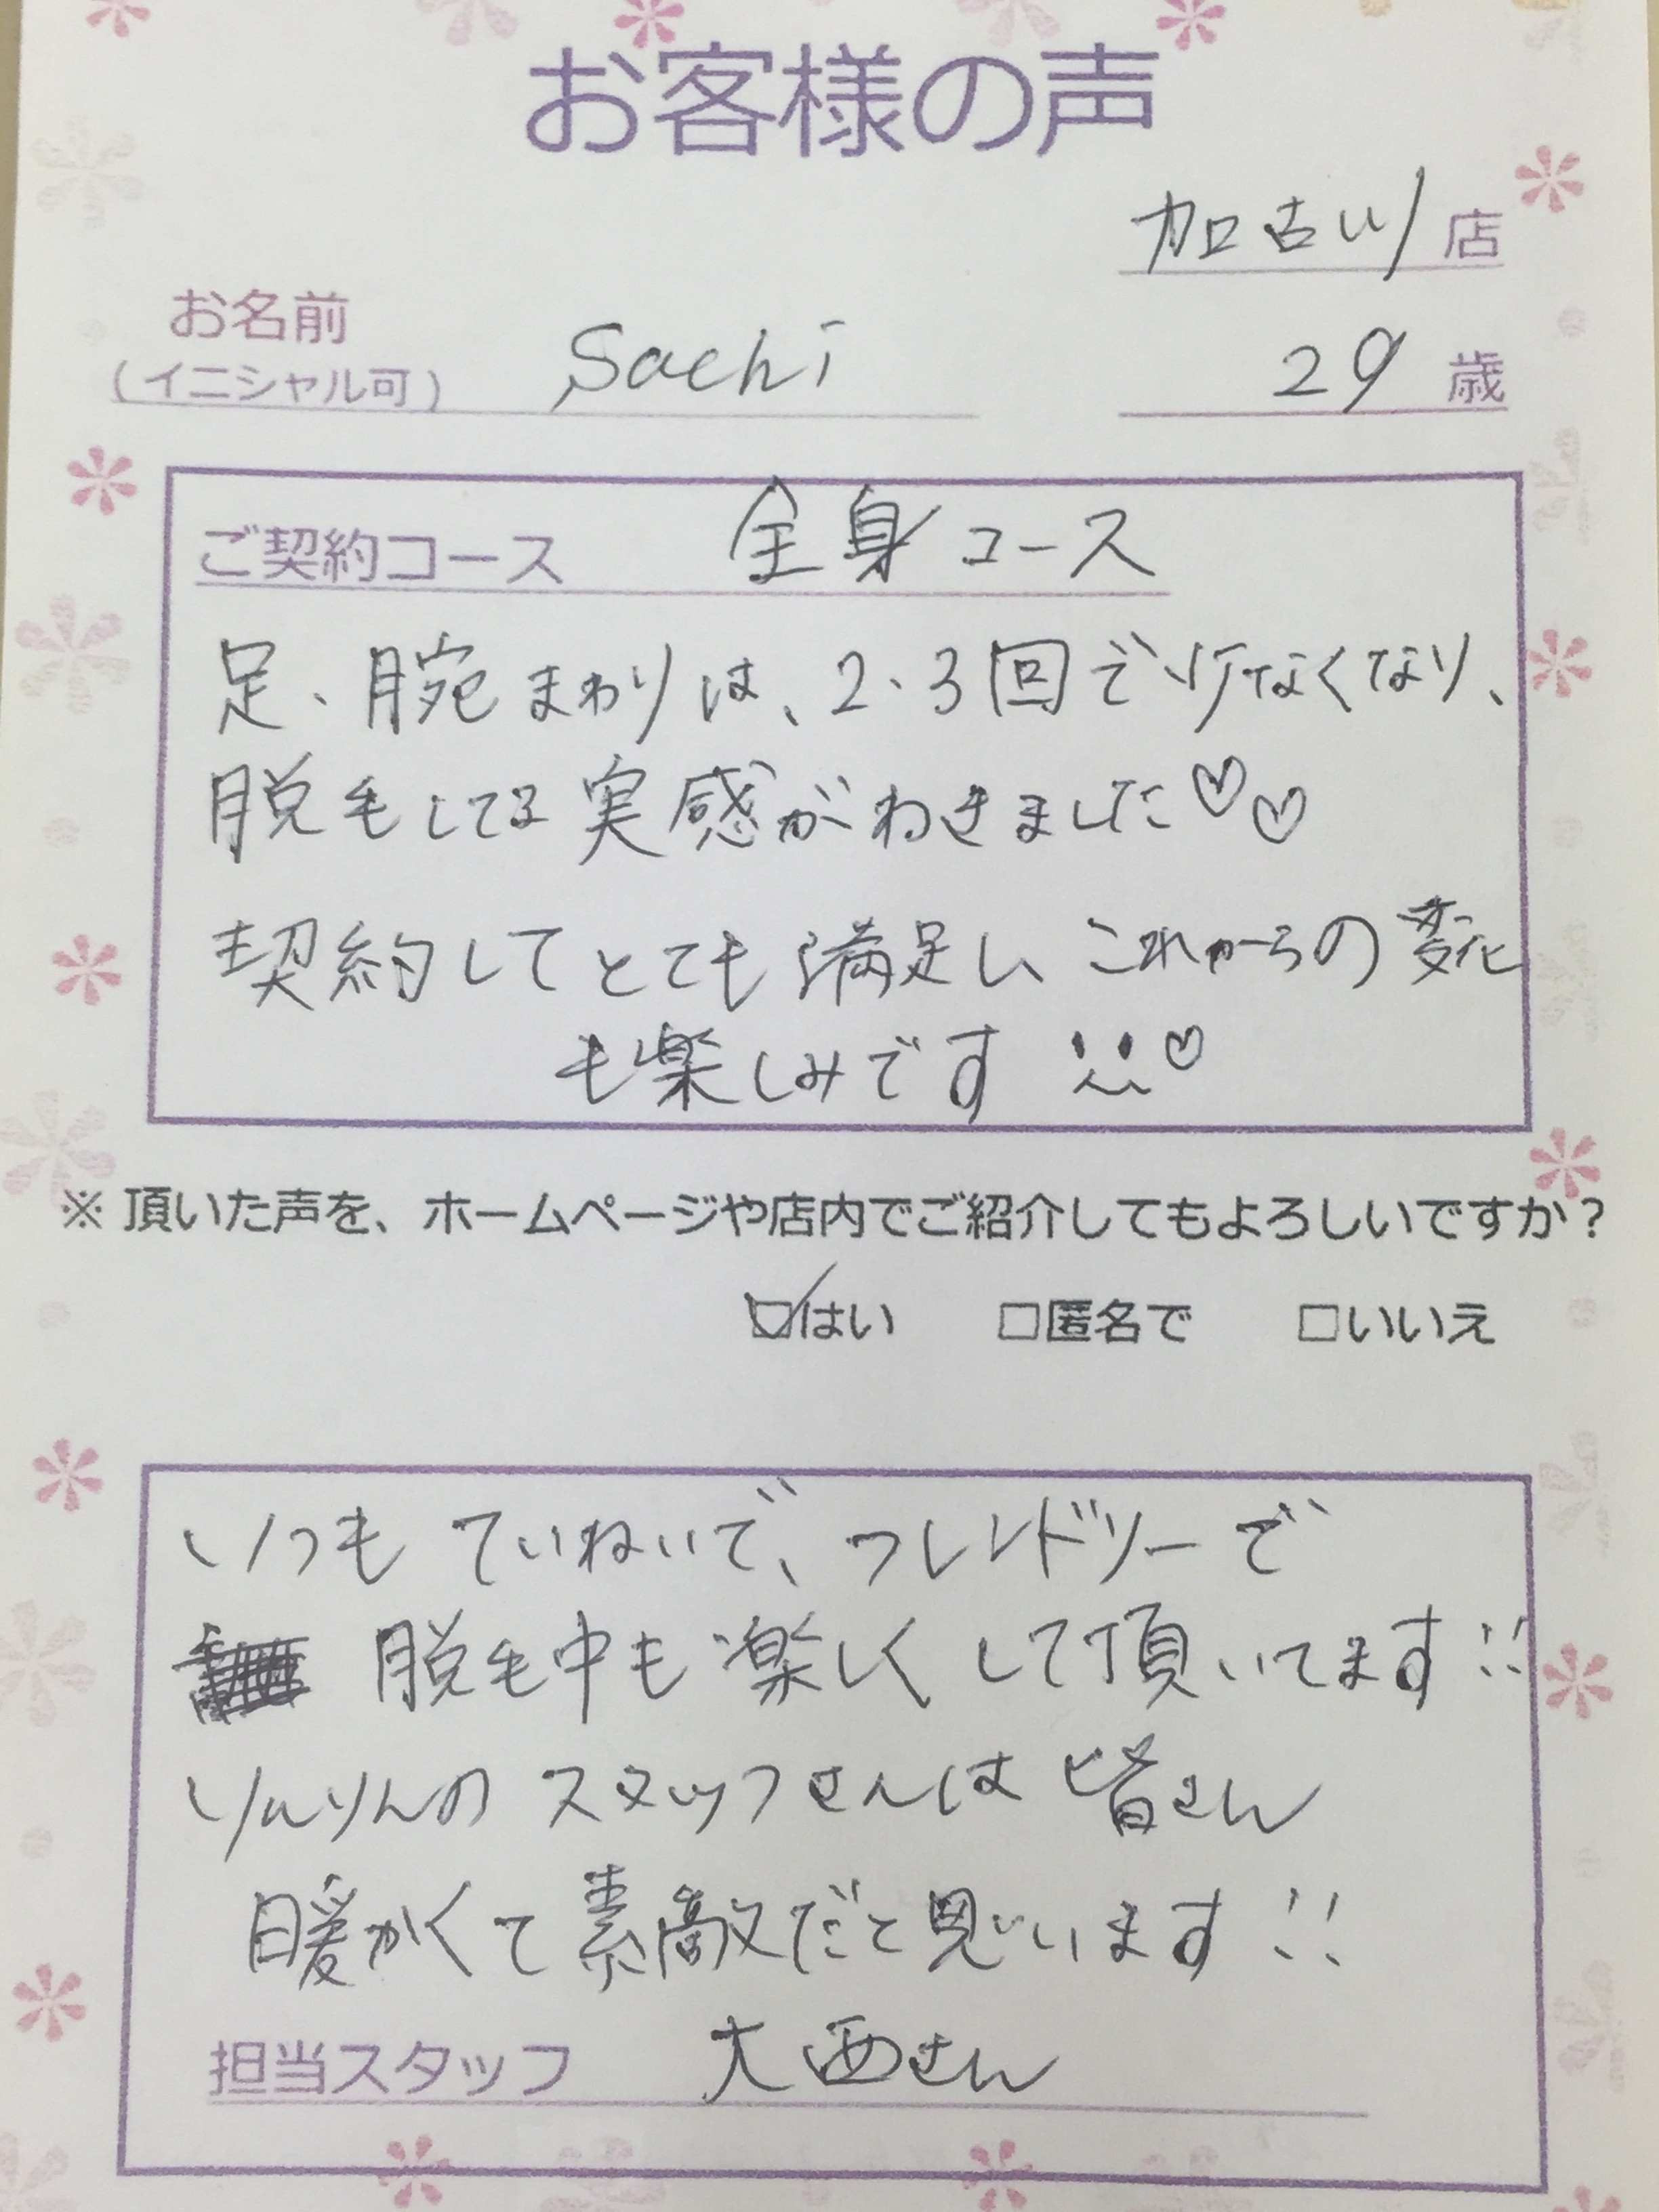 お客様の声
加古川店
お名前
(イニシャル可) Sachi 29歳
ご契約コース 全身コース
足、腕まわりは、2、3回で少なくなり、
脱毛してる実感がわきました♡♡
契約してとても満足し、これからの変化
も楽しみです ♡
※ 頂いた声を、ホームページや店内でご紹介してもよろしいですか？
☑はい □匿名で □いいえ
いつもていねいで、フレンドリーで
脱毛中も楽しくして頂いてます!!
りんりんのスタッフさんは皆さん
暖かくて素敵だと思います!!
担当スタッフ 大西さん